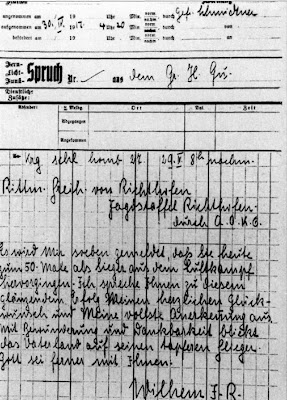 Station
angenommen am 30. IV. 1917. um 4 Uhr 20 Min.
aufgenommen am 19 Uhr Min.
befördert am 19 Uhr Min.
Gef. Schneider
durch
an
an
Fern-
Licht-
Funk-
Spruch Nr. aus dem Gr. H. Qu.
Dienstliche
Zusätze:
Absender: 2. Meldg. Ort Dat. Zeit
Abgegangen
Angekommen
29. 8 Uhr nachm.
Rittm. Freih. von Richthofen
Jagdstaffel Richthofen.
durch A.O.K.6.
Es wird Mir soeben gemeldet, daß Sie heute
zum 50. Male als Sieger aus dem Luftkampf
hervorgingen. Ich spreche Ihnen zu diesem
glänzenden Erfolg Meinen herzlichen Glück-
wunsch und Meine vollste Anerkennung aus.
Mit Bewunderung und Dankbarkeit blickt
das Vaterland auf seinen tapferen Flieger.
Gott sei ferner mit Ihnen.
Wilhelm I. R.